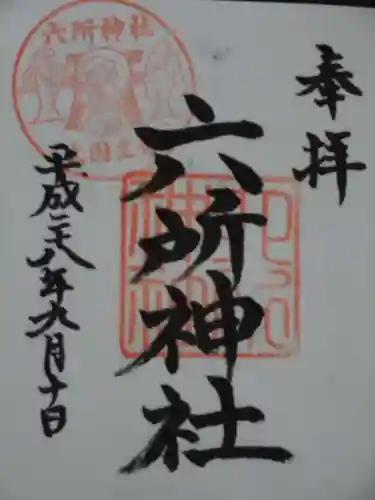 奉拝
六所神社
平成二十八年九月十日
六所神社